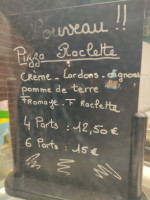 Nouveau !!
Pizza Raclette
Crème - Lardons - oignons
pomme de terre
Fromage - F Raclette
4 Parts : 12,50€
6 Parts : 15€